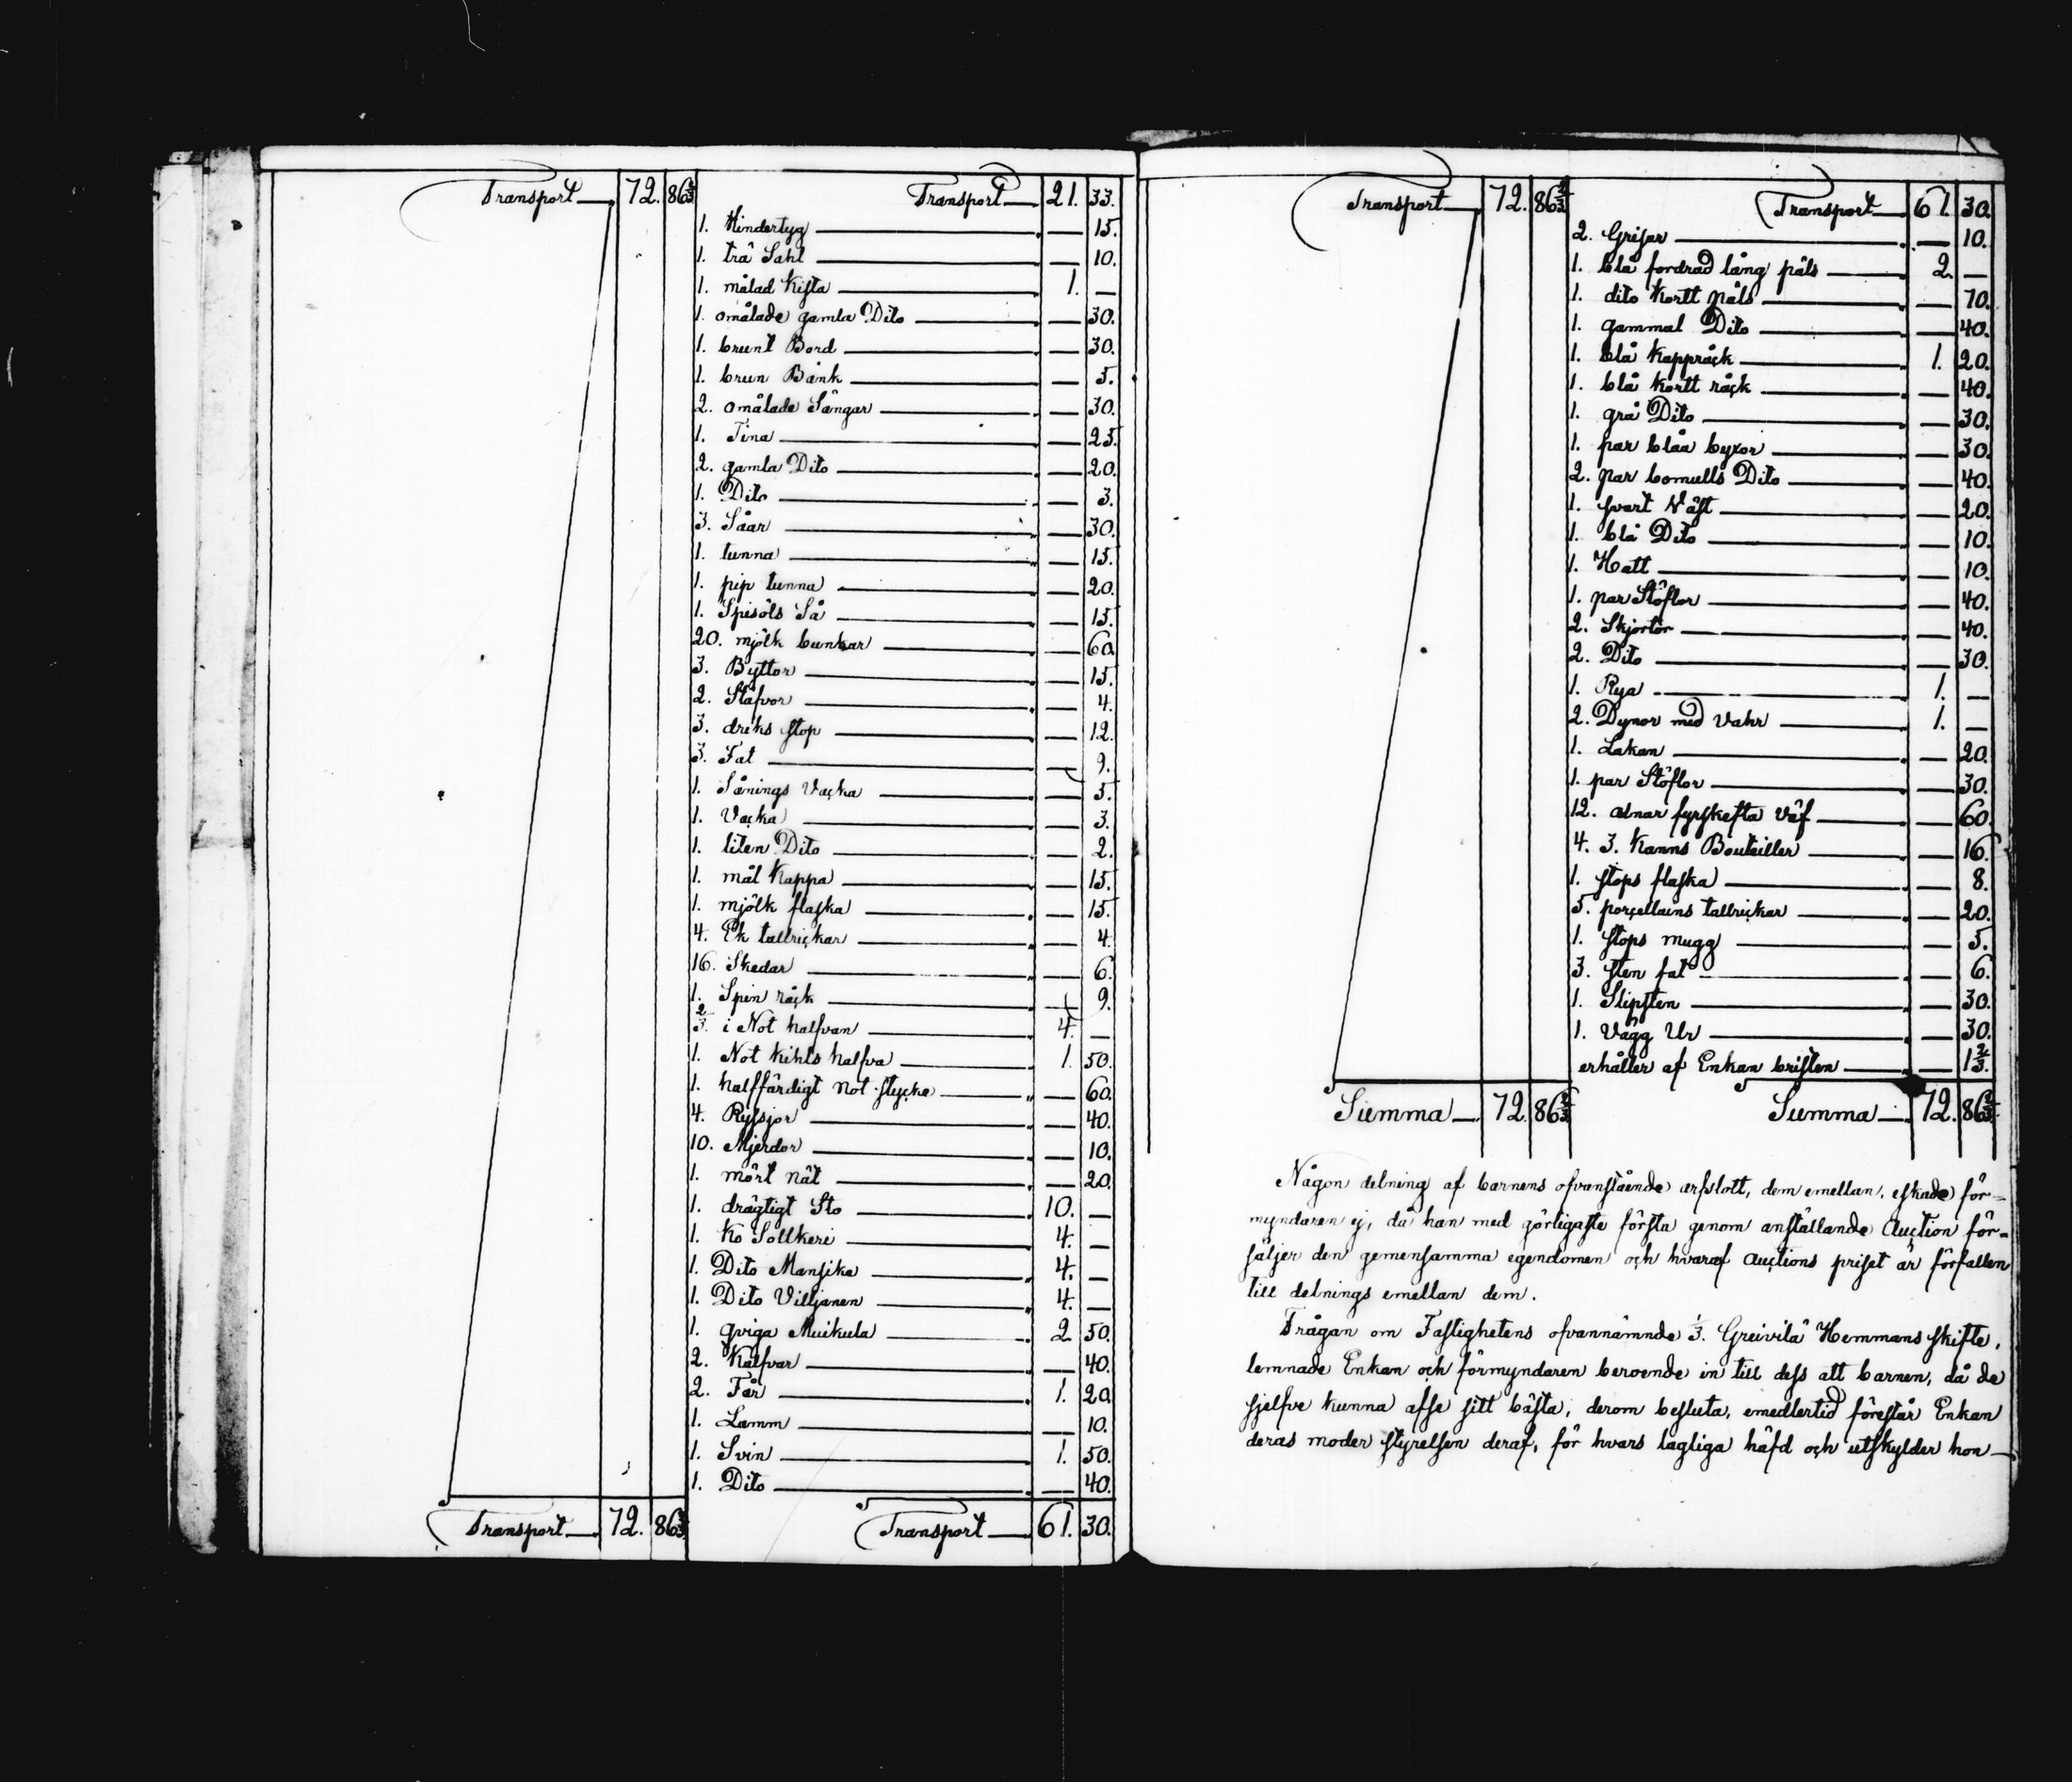 Transport 72. 86 2/3 Transport 21. 33.
1. Hindertyg — 15.
1. trä Sahl — 10.
1. målad Kista 1. —
1. omålade gamla Dito — 30.
1. brunt Bord — 30.
1. brun Bänk — 5.
2. omålade Sängar — 30.
1. Tina — 25.
2. gamla Dito — 20.
1. Dito — 3.
3. Såar — 30.
1. tunna — 15.
1. pip tunna — 20.
1. Spisöls Så — 15.
20. mjölk bunkar — 60.
3. Byttor — 15.
2. Stäfvor — 4.
3. dricks stop — 12.
3. Fat — 9.
1. Sånings Vacka — 5.
1. Vacka — 3.
1. liten Dito — 2.
1. mål Kappa — 15.
1. mjölk flaska — 15.
4. Ek tallrickar — 4.
16. Skedar — 6.
1. Spin råck — 9.
2/3. i Not halfvan 4. —
1. Not Kihls halfva 1. 50.
1. halffärdigt not stycke — 60.
4. Ryssjor — 40.
10. Mjerdor — 10.
1. mört nät — 20.
1. drägtigt Sto 10. —
1. Ko Sollkeri 4. —
1. Dito Mansika 4. —
1. Dito Villjanen 4. —
1. qviga Muikula 2. 50.
2. Kalfvar — 40.
2. Får 1. 20.
1. Lamm — 10.
1. Svin 1. 50.
1. Dito — 40.
Transport 72. 86 2/3 Transport 61. 30.
Transport 72. 86 2/3 Transport 61. 30.
2. Grisar — 10.
1. blå fordrad lång päls 2. —
1. dito Kortt päls — 70.
1. gammal Dito — 40.
1. blå Kappråck 1. 20.
1. blå Kortt råck — 40.
1. grå Dito — 30.
1. par blåa byxor — 30.
2. par bomulls Dito — 40.
1. svart Väst — 20.
1. blå Dito — 10.
1. Hatt — 10.
1. par Stöflor — 40.
2. Skjortor — 40.
2. Dito — 30.
1. Rya 1. —
2. Dynor med Vahr 1. —
1. Lakan — 20.
1. par Stöflor — 30.
12. alnar fyrskefta Väf — 60.
4. 3. Kanns Bouteiller — 16.
1. stops flaska — 8.
5. porcellains tallrickar — 20.
1. stops mugg — 5.
3. sten fat — 6.
1. Slipsten — 30.
1. Vägg Ur — 30.
erhåller af Enkan bristen — 1 2/3.
Summa 72. 86 2/3 Summa 72. 86 2/3.
Någon delning af barnens ofvanstående arfslott, dem emellan, eskade för=
myndaren ej, då han med görligaste första genom anställande Auction för=
säljer den gemensamma egendomen och hvaraf Auctions priset är förfallen
till delnings emellan dem.
Frågan om Fastighetens ofvannämnde 1/3. Greivilä Hemmans skifte,
lemnade Enkan och förmyndaren beroende in till dess att barnen, då de
sjelfve kunna afse sitt bästa, derom besluta, emedlertid förestår Enkan
deras moder styrelsen deraf, för hvars lagliga häfd och utskylder hon